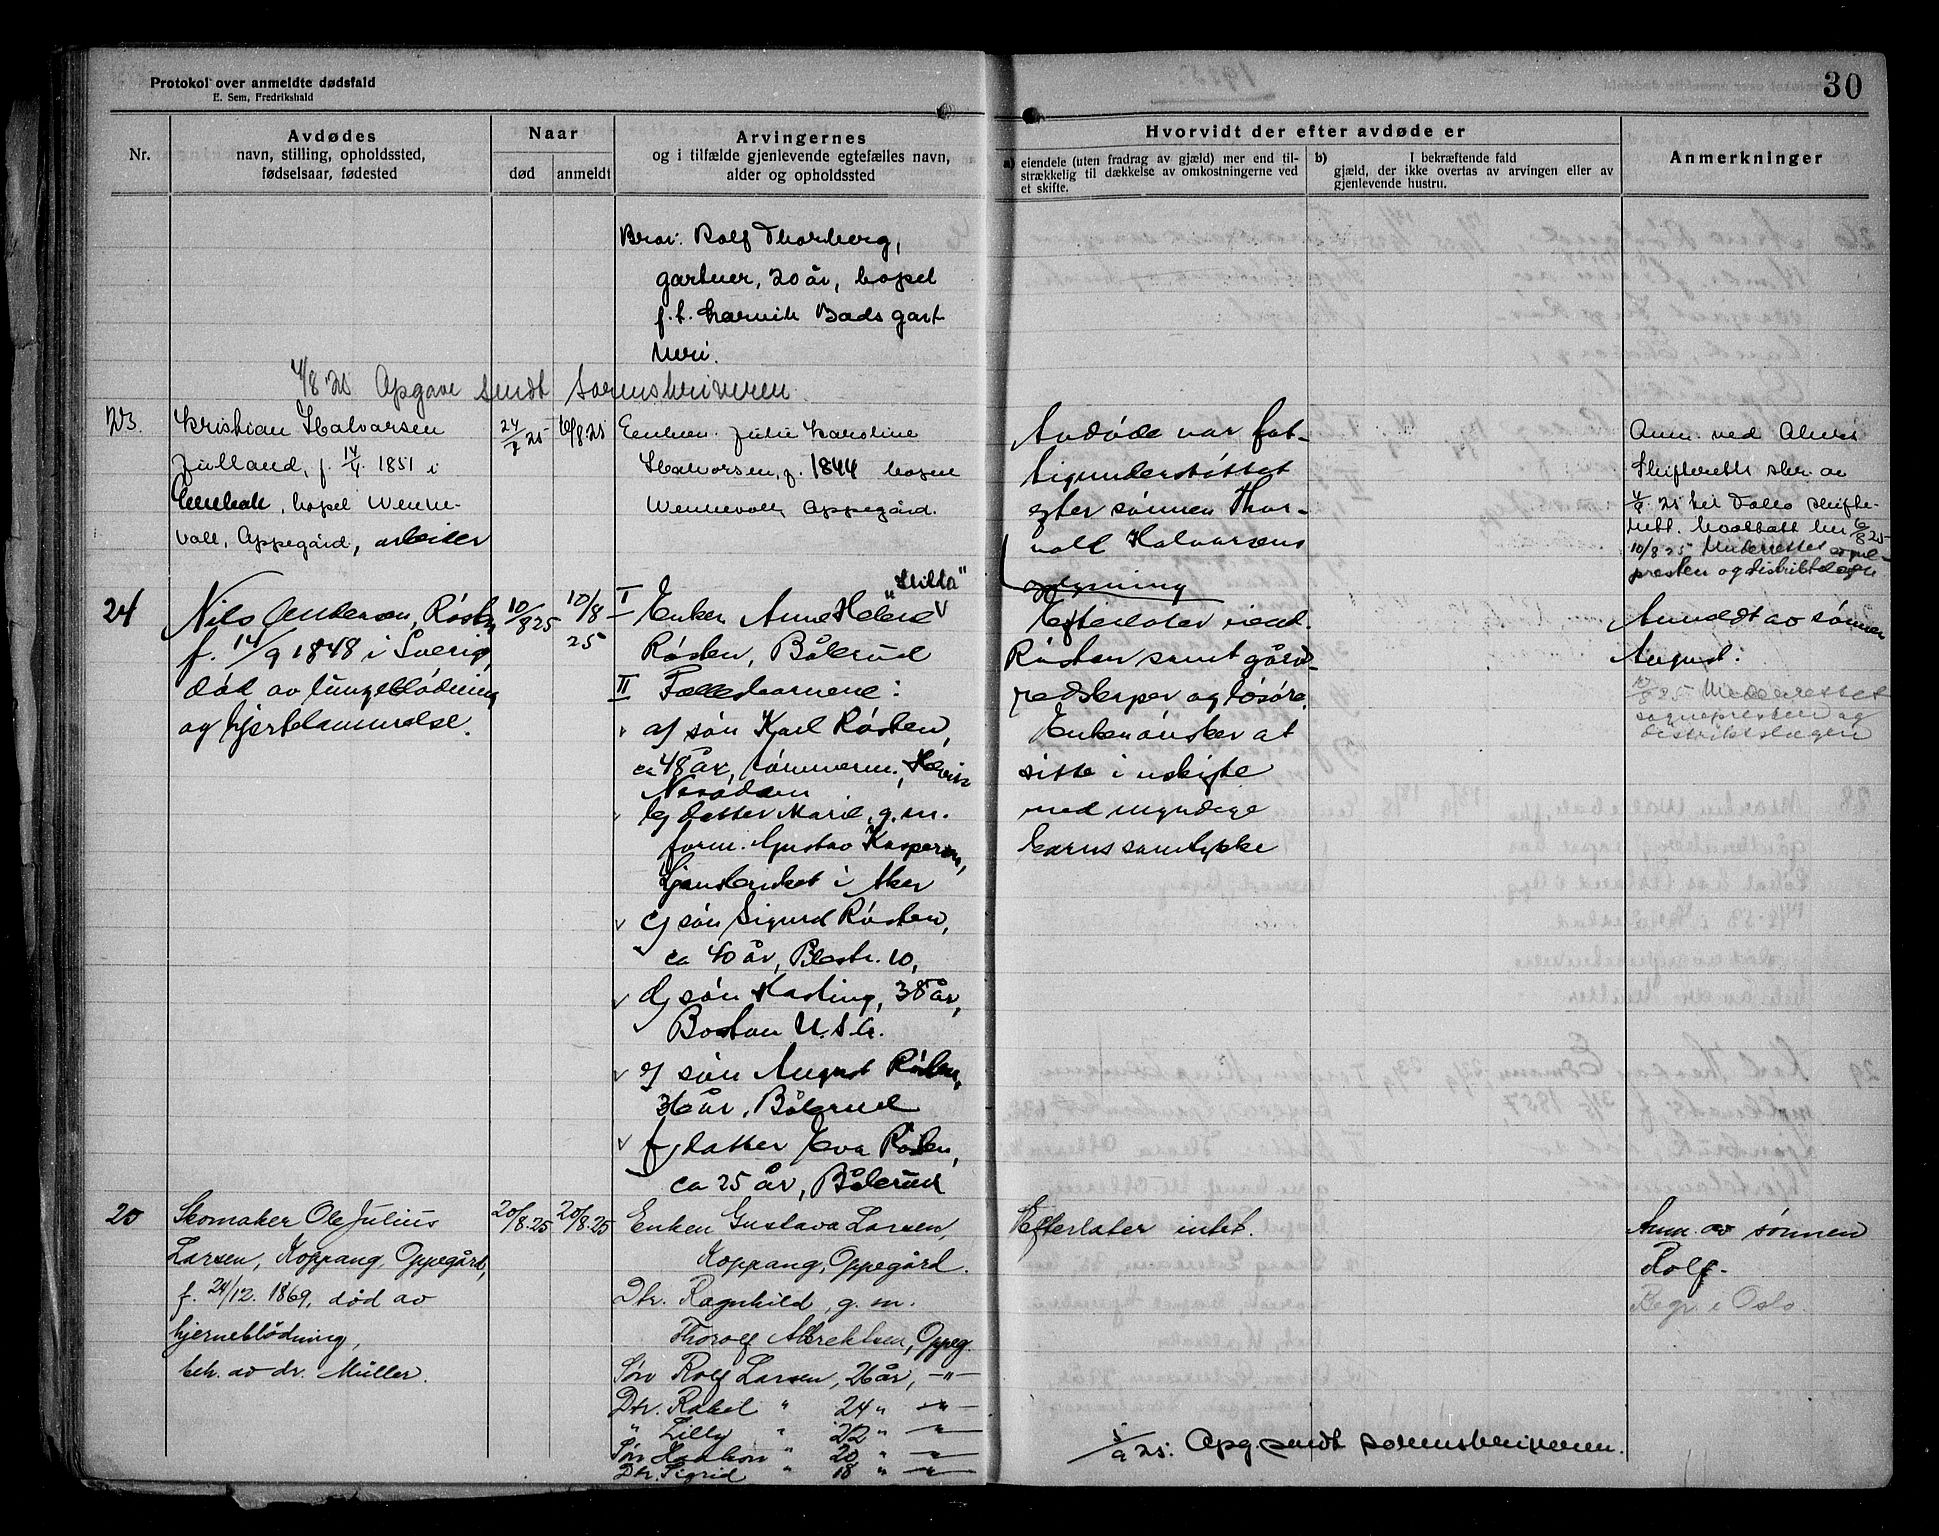 Protokol over anmeldte dødsfald
E. Sem, Fredrikshald
30
Nr.
Avdødes
navn, stilling, opholdssted,
fødselsaar, fødested
Naar
død
anmeldt
Arvingernes
og i tilfælde gjenlevende egtefælles navn,
alder og opholdssted
Hvorvidt der efter avdøde er
a) eiendele (uten fradrag av gjæld) mer end til-
strækkelig til dækkelse av omkostningerne ved
et skifte.
b) I bekræftende fald
gjæld, der ikke overtas av arvingen eller av
gjenlevende hustru.
Anmerkninger
Bror: Rolf Thorberg,
gartner, 20 år, bopel
f. t. Larvik Bads gart
neri.
4/8 25 Opgave sendt sorenskriveren
23.
Kristian Halvorsen
Jylland, f. 14/4 1851 i
bopel Wenne-
voll, Oppegård, arbeider
24/7 25
6/8.25
Enken Julie Karoline
Halvorsen, f. 1844 bopel
Wennevoll Oppegård.
Avdøde var fat-
tigunderstøttet
efter sønnen Thor-
vald Halvorsens
opgivning
Anm. ved Akers
Skifterett skr. av
4/8 25 til Follo skifte-
rett. Mottatt her 6/8 25
10/8 25 Underrettet sogne-
presten og distriktslægen
24
Nils Andersen, Røsten
f. 14/9 1848 i Sverige,
død av lungeblødning
og hjertelammelse.
10/8 25
10/8
25
I Enken Anne Helene "Milla"
Røsten, Bålerud
II Fællesbarnene:
a) søn Karl Røsten,
ca 48 år, tømmerm.,
Nesodden
b) datter Marie, g. m.
form. Gustav Kaspersen,
Ljansbruket i Aker
c) søn Sigurd Røsten,
ca 40 år, 10,
d) søn Hasting, 38 år,
Boston U.S.A.
e) søn August Røsten,
36 år, Bålerud
f) datter Eva Røsten,
ca 25 år, Bålerud
Efterlater eiend.
Røsten samt gårds-
redskaper og løsøre.
Enken ønsker at
sitte i uskifte
med myndige
barns samtykke
Anmeldt av sønnen
August.
10/8 25 Underrettet
sognepresten og
distriktslægen
25
Skomaker Ole Julius
Larsen, Koppang, Oppegård,
f. 24/12. 1869, død av
hjerneblødning,
beh. av dr. Müller.
20/8.25
20/8.25
Enken Gustava Larsen,
Koppang, Oppegård.
Dtr. Ragnhild, g. m.
Thorolf Albrektsen, Oppeg.
Søn Rolf Larsen, 26 år, —"—
Dtr. Rakel " 24 " —"—
" Lilly " 22 " —"—
Søn Haakon " 20 " —"—
Dtr. Sigrid " 18 " —"—
Efterlater intet.
Anm. av sønnen
Rolf.
Begr. i Oslo.
5/9 25: Opg. sendt sorenskriveren.